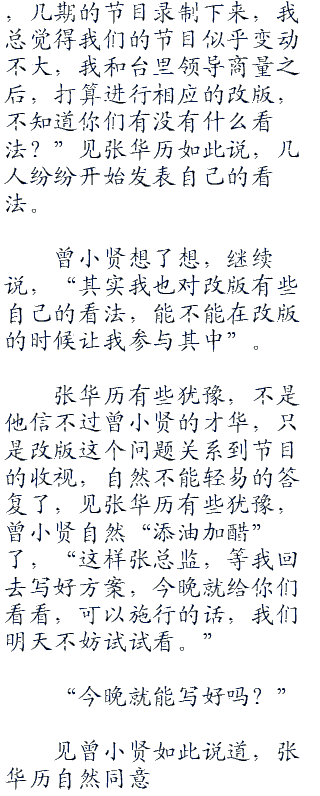 ，几期的节目录制下来，我
总觉得我们的节目似乎变动
不大，我和台里领导商量之
后，打算进行相应的改版，
不知道你们有没有什么看
法？”见张华历如此说，几
人纷纷开始发表自己的看
法。
曾小贤想了想，继续
说，“其实我也对改版有些
自己的看法，能不能在改版
的时候让我参与其中”。
张华历有些犹豫，不是
他信不过曾小贤的才华，只
是改版这个问题关系到节目
的收视，自然不能轻易的答
复了，见张华历有些犹豫，
曾小贤自然“添油加醋”
了，“这样张总监，等我回
去写好方案，今晚就给你们
看看，可以施行的话，我们
明天不妨试试看。”
“今晚就能写好吗？”
见曾小贤如此说道，张
华历自然同意